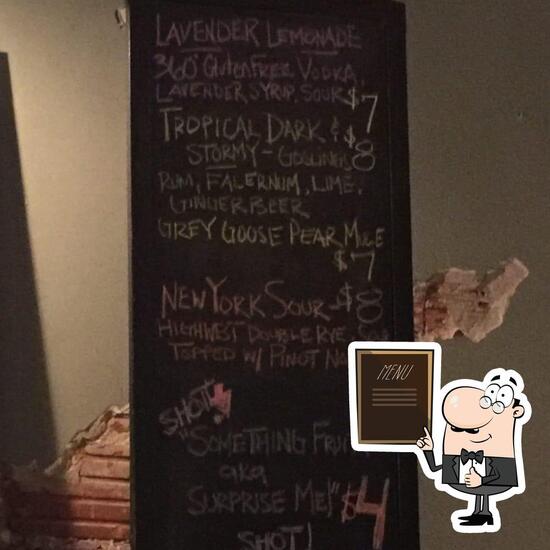 LAVENDER LEMONADE
360° GLUTEN FREE VODKA,
LAVENDER SYRUP, SOUR $7
TROPICAL DARK & $8
STORMY - GOSLINGS
RUM, FALERNUM, LIME,
GINGER BEER
GREY GOOSE PEAR MULE
$7
NEW YORK SOUR - $8
HIGHWEST DOUBLE RYE,
TOPPED W/ PINOT
SHOT!
"SOMETHING
aka
SURPRISE ME!" $4
SHOT!
MENU